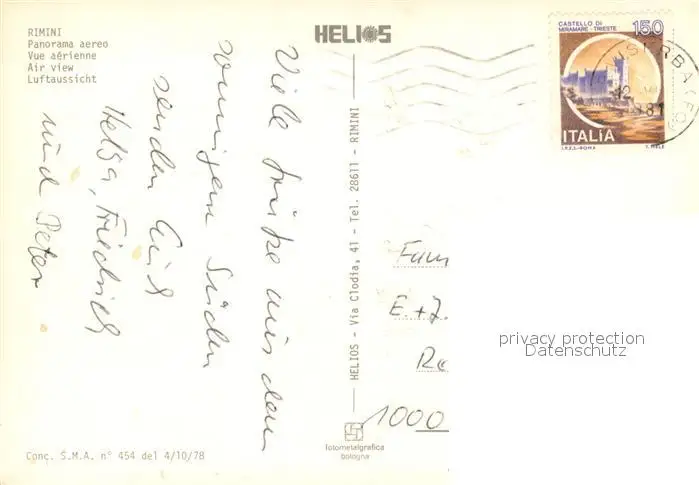 RIMINI
Panorama aereo
Vue aérienne
Air view
Luftaussicht
HELIOS
CASTELLO DI
MIRAMARE - TRIESTE
150
ITALIA
I.P.Z.S.-ROMA
Viele Grüße aus dem
sonnigen Süden
senden Euch
Helga, Friedrich
und Peter
HELIOS - Via Clodia, 41 - Tel. 28611 - RIMINI
Fam
E. + J.
1000
privacy protection
Datenschutz
fotometalgrafica
bologna
Conc. S.M.A. n° 454 del 4/10/78